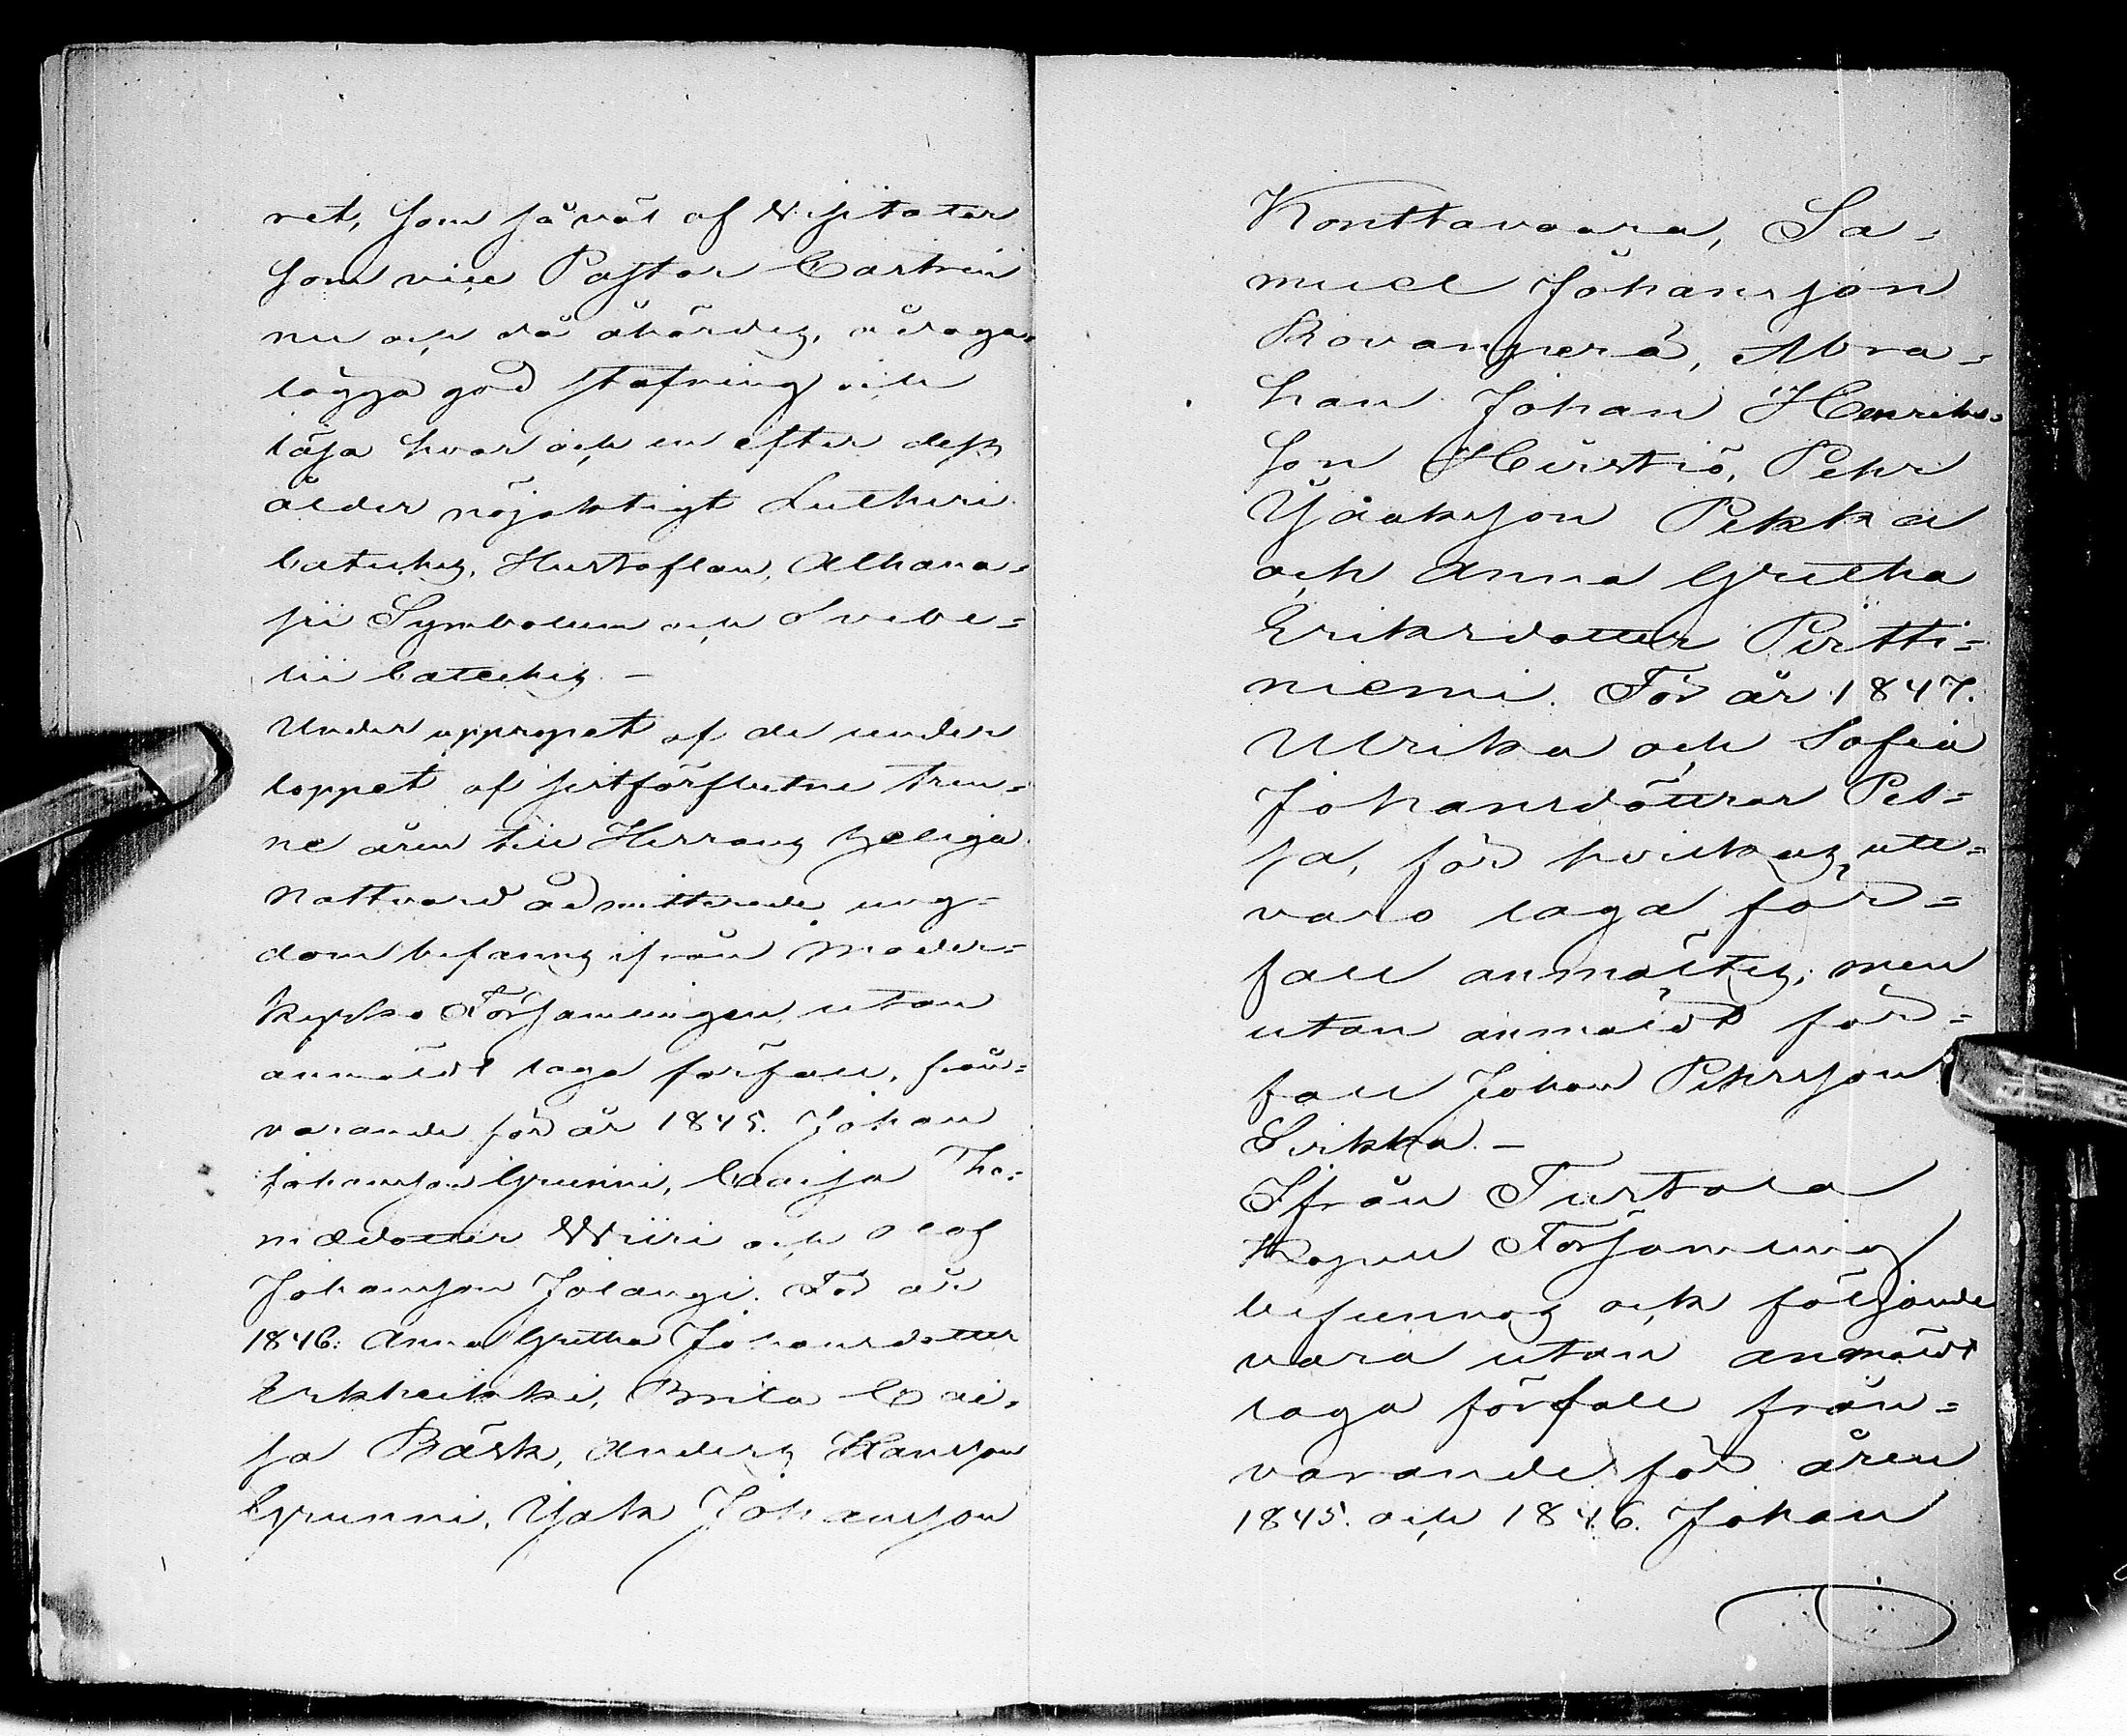 ret, som så väl af Visitator
som vice Pastor Castrén
nu och då åhördes, ådaga-
lägga god stafning och
läsa hvar och en efter dess
ålder nöjaktigt Lutheri
Cateches, Hustaflan, Athana-
sii Symbolum och Svebe-
lii Cateches. –
Under uppropet af de under
loppet af sistförflutne tren-
ne åren till Herrans heliga
Nattvard admitterade ung-
dom befanns ifrån Moder-
kyrko Församlingen, utan
anmäldt laga förfall, från-
varande för år 1845. Johan
Johansson Grunni, Caisa Tho-
mædotter Wiiri och Olof
Johansson Jolangi. För år
1846: Anna Gretha Johansdotter
Erkheikki, Brita Cai-
sa Bäck, Anders Hansson
Grunni, Isak Johansson
Konttavaara, Sa-
muel Johansson
Rovanperä, Abra-
ham Johan Henriks-
son Hirstiö, Pehr
Isaksson Pekka
och Anna Gretha
Eriksdotter Pirtti-
niemi. För år 1847.
Ulrika och Sofia
Johansdöttrar Pel-
sa, för hvilkas ute-
varo laga för-
fall anmältes; men
utan anmäldt för-
fall Johan Pehrsson
Sirkka. –
Ifrån Turtola
Kapell Församling
befunnos och följande
vara utan anmäldt
laga förfall från-
varande för åren
1845. och 1846. Johan